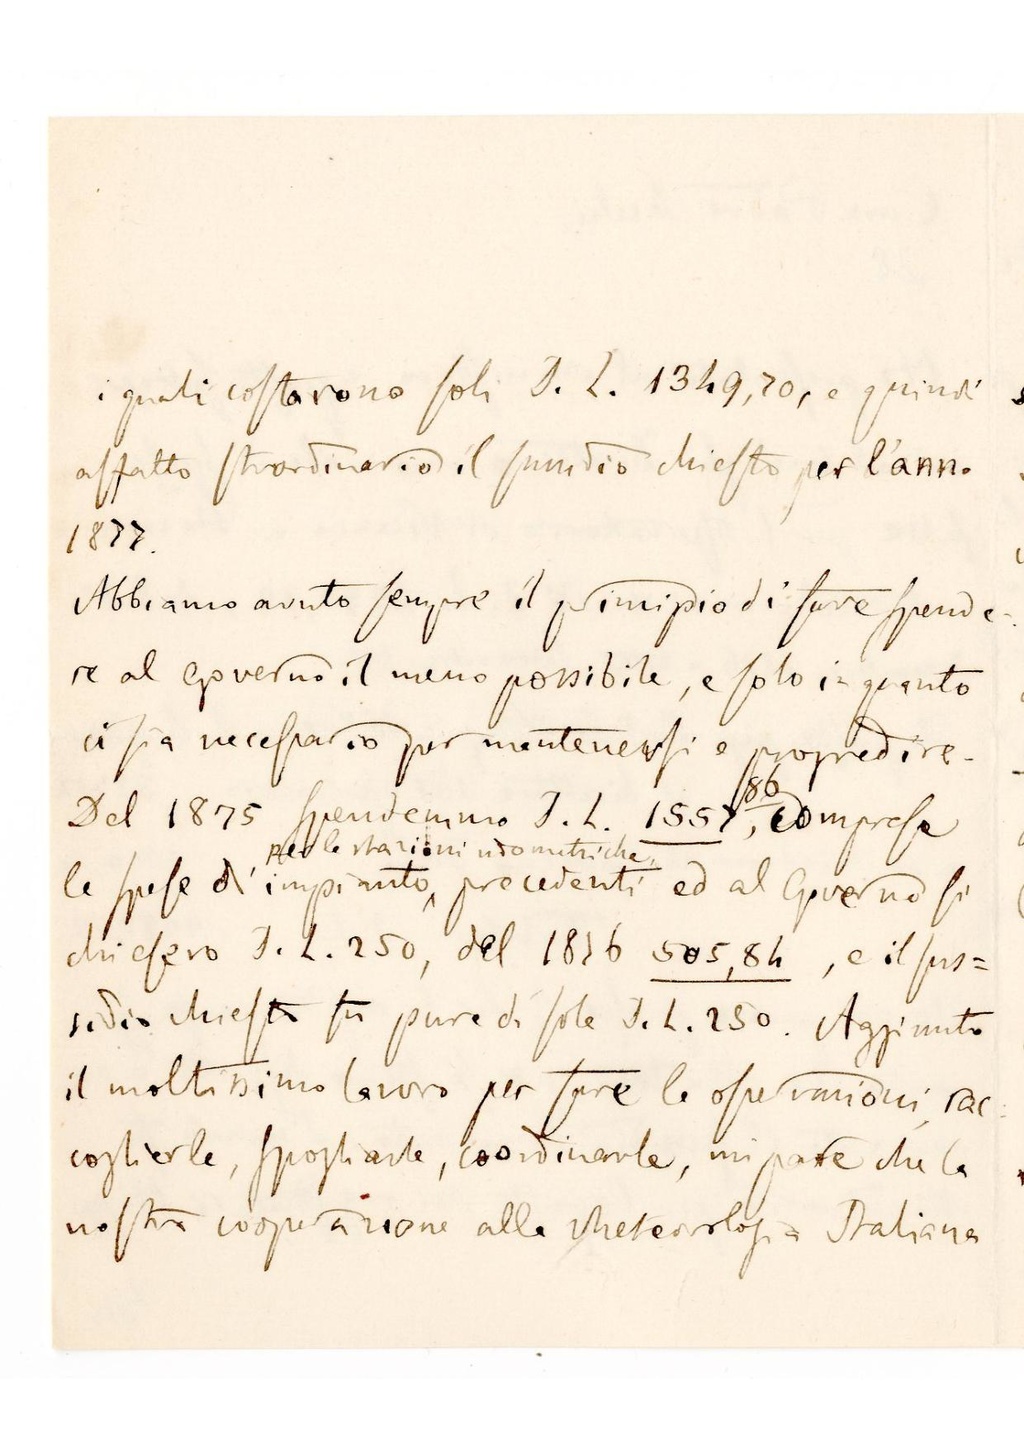 i quali costarono soli I. L. 1349,70, e quindi
affatto straordinario il sussidio chiesto per l'anno
1877.
Abbiamo avuto sempre il principio di fare spende-
re al Governo il meno possibile, e solo in quanto
ci sia necessario per mantenersi e progredire.
Del 1875 spendemmo I. L. 1557,86 comprese
le spese d'impianto per le stazioni udometriche, precedenti ed al Governo si
chiesero I. L. 250, del 1876 505,84, e il sus=
sidio chiesto fu pure di sole I. L. 250. Aggiunto
il moltissimo lavoro per fare le osservazioni, rac=
coglierle, spogliarle, coordinarle, mi pare che la
nostra cooperazione alla Meteorologia Italiana